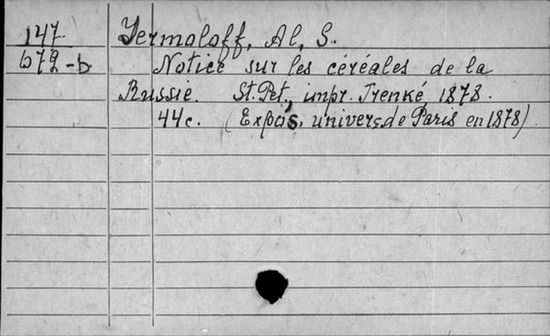 147. Jermoloff, Al, S.
b72-b. Notice sur les céréales de la
Russie. St. Pet., impr. Trenké, 1878.
44c. (Expos. univers. de Paris en 1878).